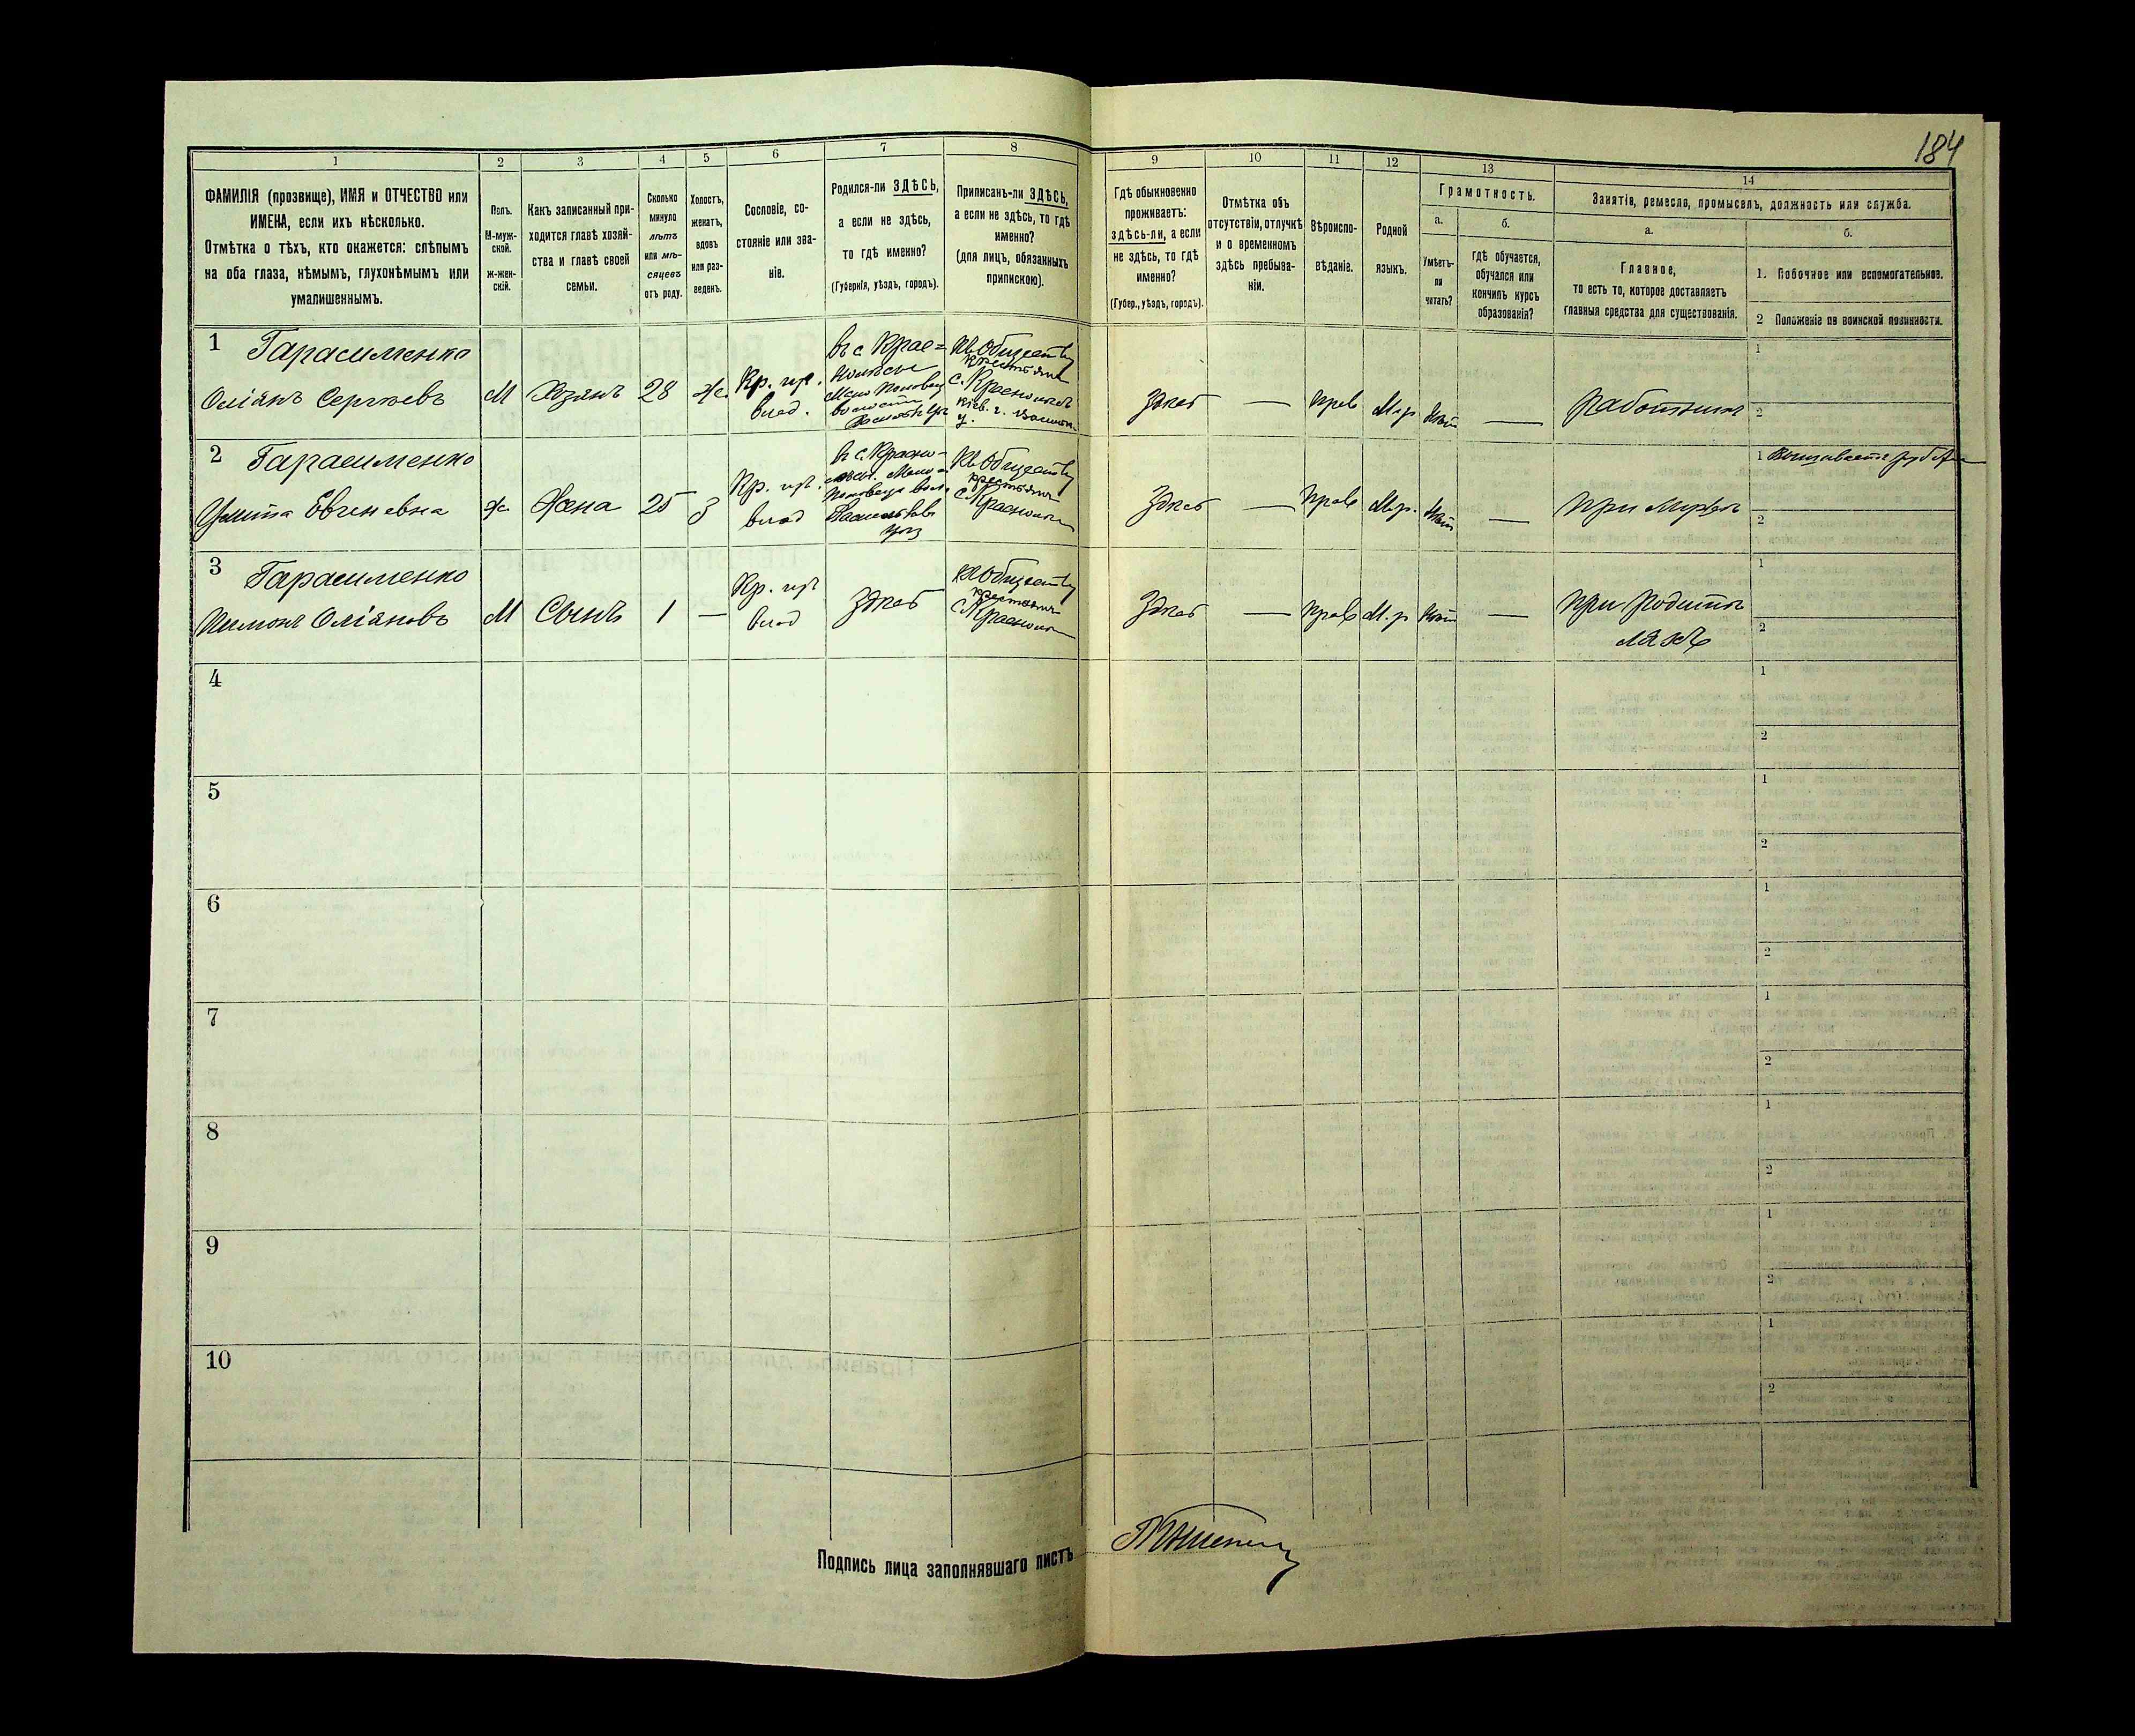 184
1
2
3
4
5
6
7
8
9
10
11
12
13
14
ФАМИЛІЯ (прозвище), ИМЯ и ОТЧЕСТВО или
ИМЕНА, если ихъ нѣсколько.
Отмѣтка о тѣхъ, кто окажется: слѣпымъ
на оба глаза, нѣмымъ, глухонѣмымъ или
умалишеннымъ.
Полъ.
М-муж-
ской.
ж-жен-
скій.
Какъ записанный при-
ходится главѣ хозяй-
ства и главѣ своей
семьи.
Сколько
минуло
лѣтъ
или мѣ-
сяцевъ
отъ роду.
Холостъ,
женатъ,
вдовъ
или раз-
веденъ.
Сословіе, со-
стояніе или зва-
ніе.
Родился-ли ЗДѢСЬ,
а если не здѣсь,
то гдѣ именно?
(Губернія, уѣздъ, городъ).
Приписанъ-ли ЗДѢСЬ,
а если не здѣсь, то гдѣ
именно?
(для лицъ, обязанныхъ
припискою).
Гдѣ обыкновенно
проживаетъ:
здѣсь-ли, а если
не здѣсь, то гдѣ
именно?
(Губер., уѣздъ, городъ).
Отмѣтка объ
отсутствіи, отлучкѣ
и о временномъ
здѣсь пребыва-
ніи.
Вѣроиспо-
вѣданіе.
Родной
языкъ.
Грамотность.
а.
Умѣетъ-
ли
читать?
б.
гдѣ обучается,
обучался или
кончилъ курсъ
образованія?
Занятіе, ремесло, промыселъ, должность или служба.
а.
Главное,
то есть то, которое доставляетъ
главныя средства для существованія.
б.
1. Побочное или вспомогательное.
2 Положеніе по воинской повинности.
1 Гарасименко
Оліянъ Сергѣевъ
М
Хозяинъ
28
Же.
Кр.
влад.
въ с.
Къ Обществу
крестьянъ
с.
Здѣсь
—
Прав
М.р
Нѣт
—
Работникъ
1
2
2 Гарасименко
Улита Евгеневна
ж
Жена
25
З
Кр.
влад
въ с. Красно-
Къ Обществу
крестьянъ
с.
Здѣсь
—
Прав
М.р.
Нѣт
—
При Мужѣ
1 Вышиваетъ
2
3 Гарасименко
Пимонъ Оліановъ
М
Сынъ
1
—
Кр.
влад
Здѣсь
Къ Обществу
крестьянъ
с.
Здѣсь
—
Прав
М.р
Нѣт
—
При Родите
ляхъ
1
2
4
1
2
5
1
2
6
1
2
7
1
2
8
1
2
9
1
2
10
1
2
Подпись лица заполнявшаго листъ